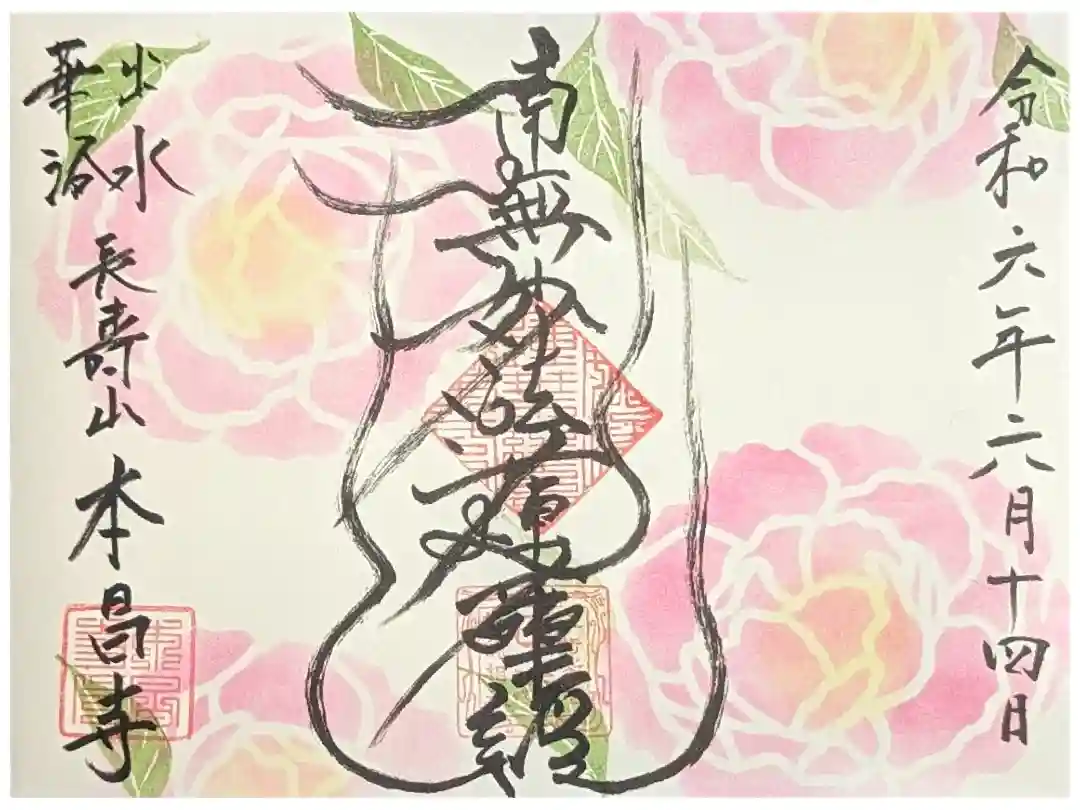 令和六年六月十四日
南無妙法蓮華經
出水
華洛
長壽山 本昌寺